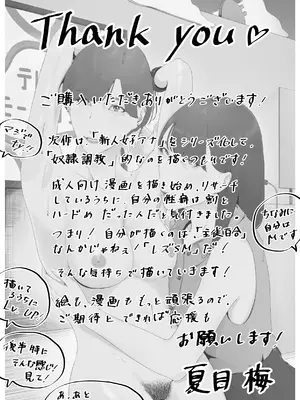 Thank you♡
ご購入いただきありがとうございます!
次作は、「新人女子アナ」をシリーズ化して、
「奴隷調教」的なのを描くつもりです!
成人向け漫画を描き始め、リサーチ
しているうちに、自分の性癖は割と
ハードめだったんだと気付きました。
つまり!自分が描くのは、「王道百合」
なんかじゃねぇ!「レズSM」だ!
そんな気持ちで描いていきます!
絵も、漫画ももっと頑張るので、
ご期待とできれば応援も
お願いします!
夏目 梅
ちなみに
自分は
Mです♡
描いて
るうちに
LV UP!
後半特に
そんな感じ!
見て!
あ、あと